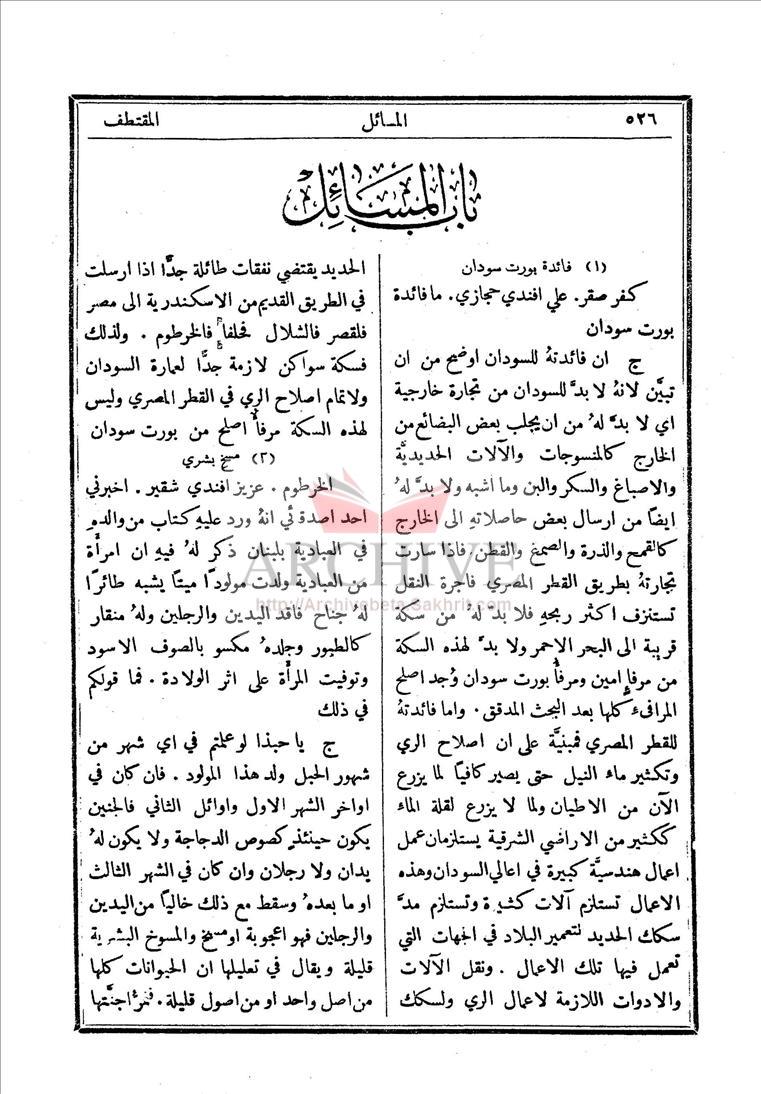 ٥٢٦ المسائل المقتطف
باب المسائل
(١) فائدة بورت سودان
كفر صقر. علي افندي حجازي. ما فائدة
بورت سودان
ج ان فائدتهُ للسودان اوضح من ان
تبيَّن لانهُ لا بدَّ للسودان من تجارة خارجية
اي لا بدَّ لهُ من ان يجلب بعض البضائع من
الخارج كالمنسوجات والآلات الحديديَّة
والاصباغ والسكر والبن وما اشبه ولا بدَّ لهُ
ايضاً من ارسال بعض حاصلاتهِ الى الخارج
كالقمح والذرة والصمغ والقطن. فاذا سارت
تجارتهُ بطريق القطر المصري فاجرة النقل
تستنزف اكثر ربحهِ فلا بدَّ لهُ من سكة
قريبة الى البحر الاحمر ولا بدَّ لهذه السكة
من مرفإ امين ومرفأ بورت سودان وُجد اصلح
المرافىء كلها بعد البحث المدقق. واما فائدتهُ
للقطر المصري فمبنيَّة على ان اصلاح الري
وتكثير ماء النيل حتى يصير كافياً لما يزرع
الآن من الاطيان ولما لا يزرع لقلة الماء
ككثير من الاراضي الشرقية يستلزمان عمل
اعمال هندسيَّة كبيرة في اعالي السودان وهذه
الاعمال تستلزم آلات كثيرة وتستلزم مدَّ
سكك الحديد لتعمير البلاد في الجهات التي
تعمل فيها تلك الاعمال. ونقل الآلات
والادوات اللازمة لاعمال الري ولسكك
الحديد يقتضي نفقات طائلة جدًّا اذا ارسلت
في الطريق القديم من الاسكندرية الى مصر
فلقصر فالشلال فحلفا فالخرطوم. ولذلك
فسكة سواكن لازمة جدًّا لعمارة السودان
ولاتمام اصلاح الري في القطر المصري وليس
لهذه السكة مرفأ اصلح من بورت سودان
(٢) مسخ بشري
الخرطوم. عزيز افندي شقير. اخبرني
احد اصدقائي انهُ ورد عليهِ كتاب من والدهِ
في العبادية بلبنان ذكر لهُ فيهِ ان امرأة
من العبادية ولدت مولوداً ميتاً يشبه طائراً
لهُ جناح فاقد اليدين والرجلين ولهُ منقار
كالطيور وجلدهُ مكسو بالصوف الاسود
وتوفيت المرأة على اثر الولادة. فما قولكم
في ذلك
ج يا حبذا لو علمتم في اي شهر من
شهور الحبل ولد هذا المولود. فان كان في
اواخر الشهر الاول واوائل الثاني فالجنين
يكون حينئذٍ كصوص الدجاجة ولا يكون لهُ
يدان ولا رجلان وان كان في الشهر الثالث
او ما بعدهُ وسقط مع ذلك خالياً من اليدين
والرجلين فهو اعجوبة او مسخ والمسوخ البشرية
قليلة ويقال في تعليلها ان الحيوانات كلها
من اصل واحد او من اصول قليلة. فتمرُّ اجنَّتها
ARCHIVE
http://Archivebeta.Sakhrit.com